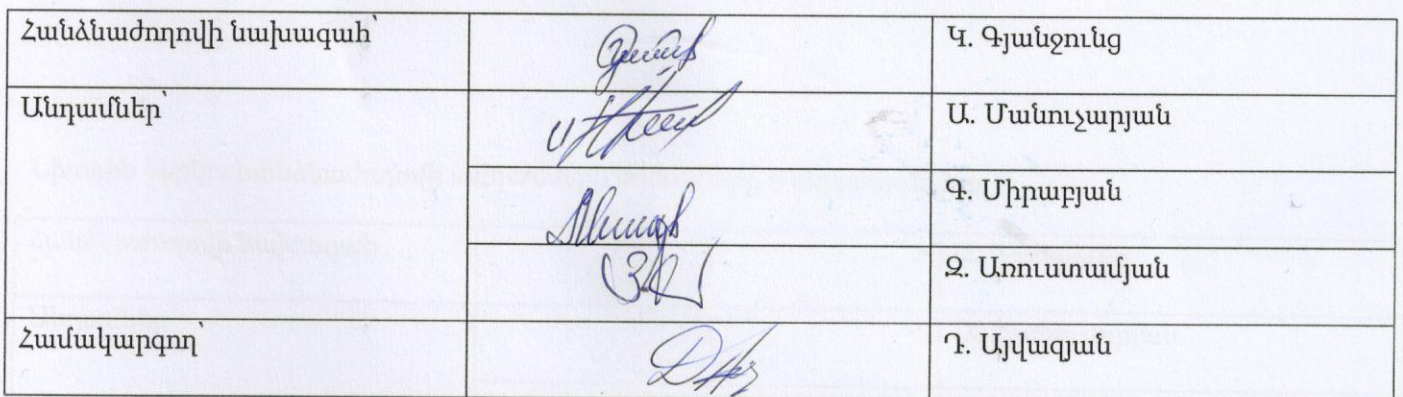 Հանձնաժողովի նախագահ՝ Կ. Գյանջունց
Անդամներ՝ Ա. Մանուչարյան
Գ. Միրաբյան
Զ. Առուստամյան
Համակարգող՝ Դ. Այվազյան